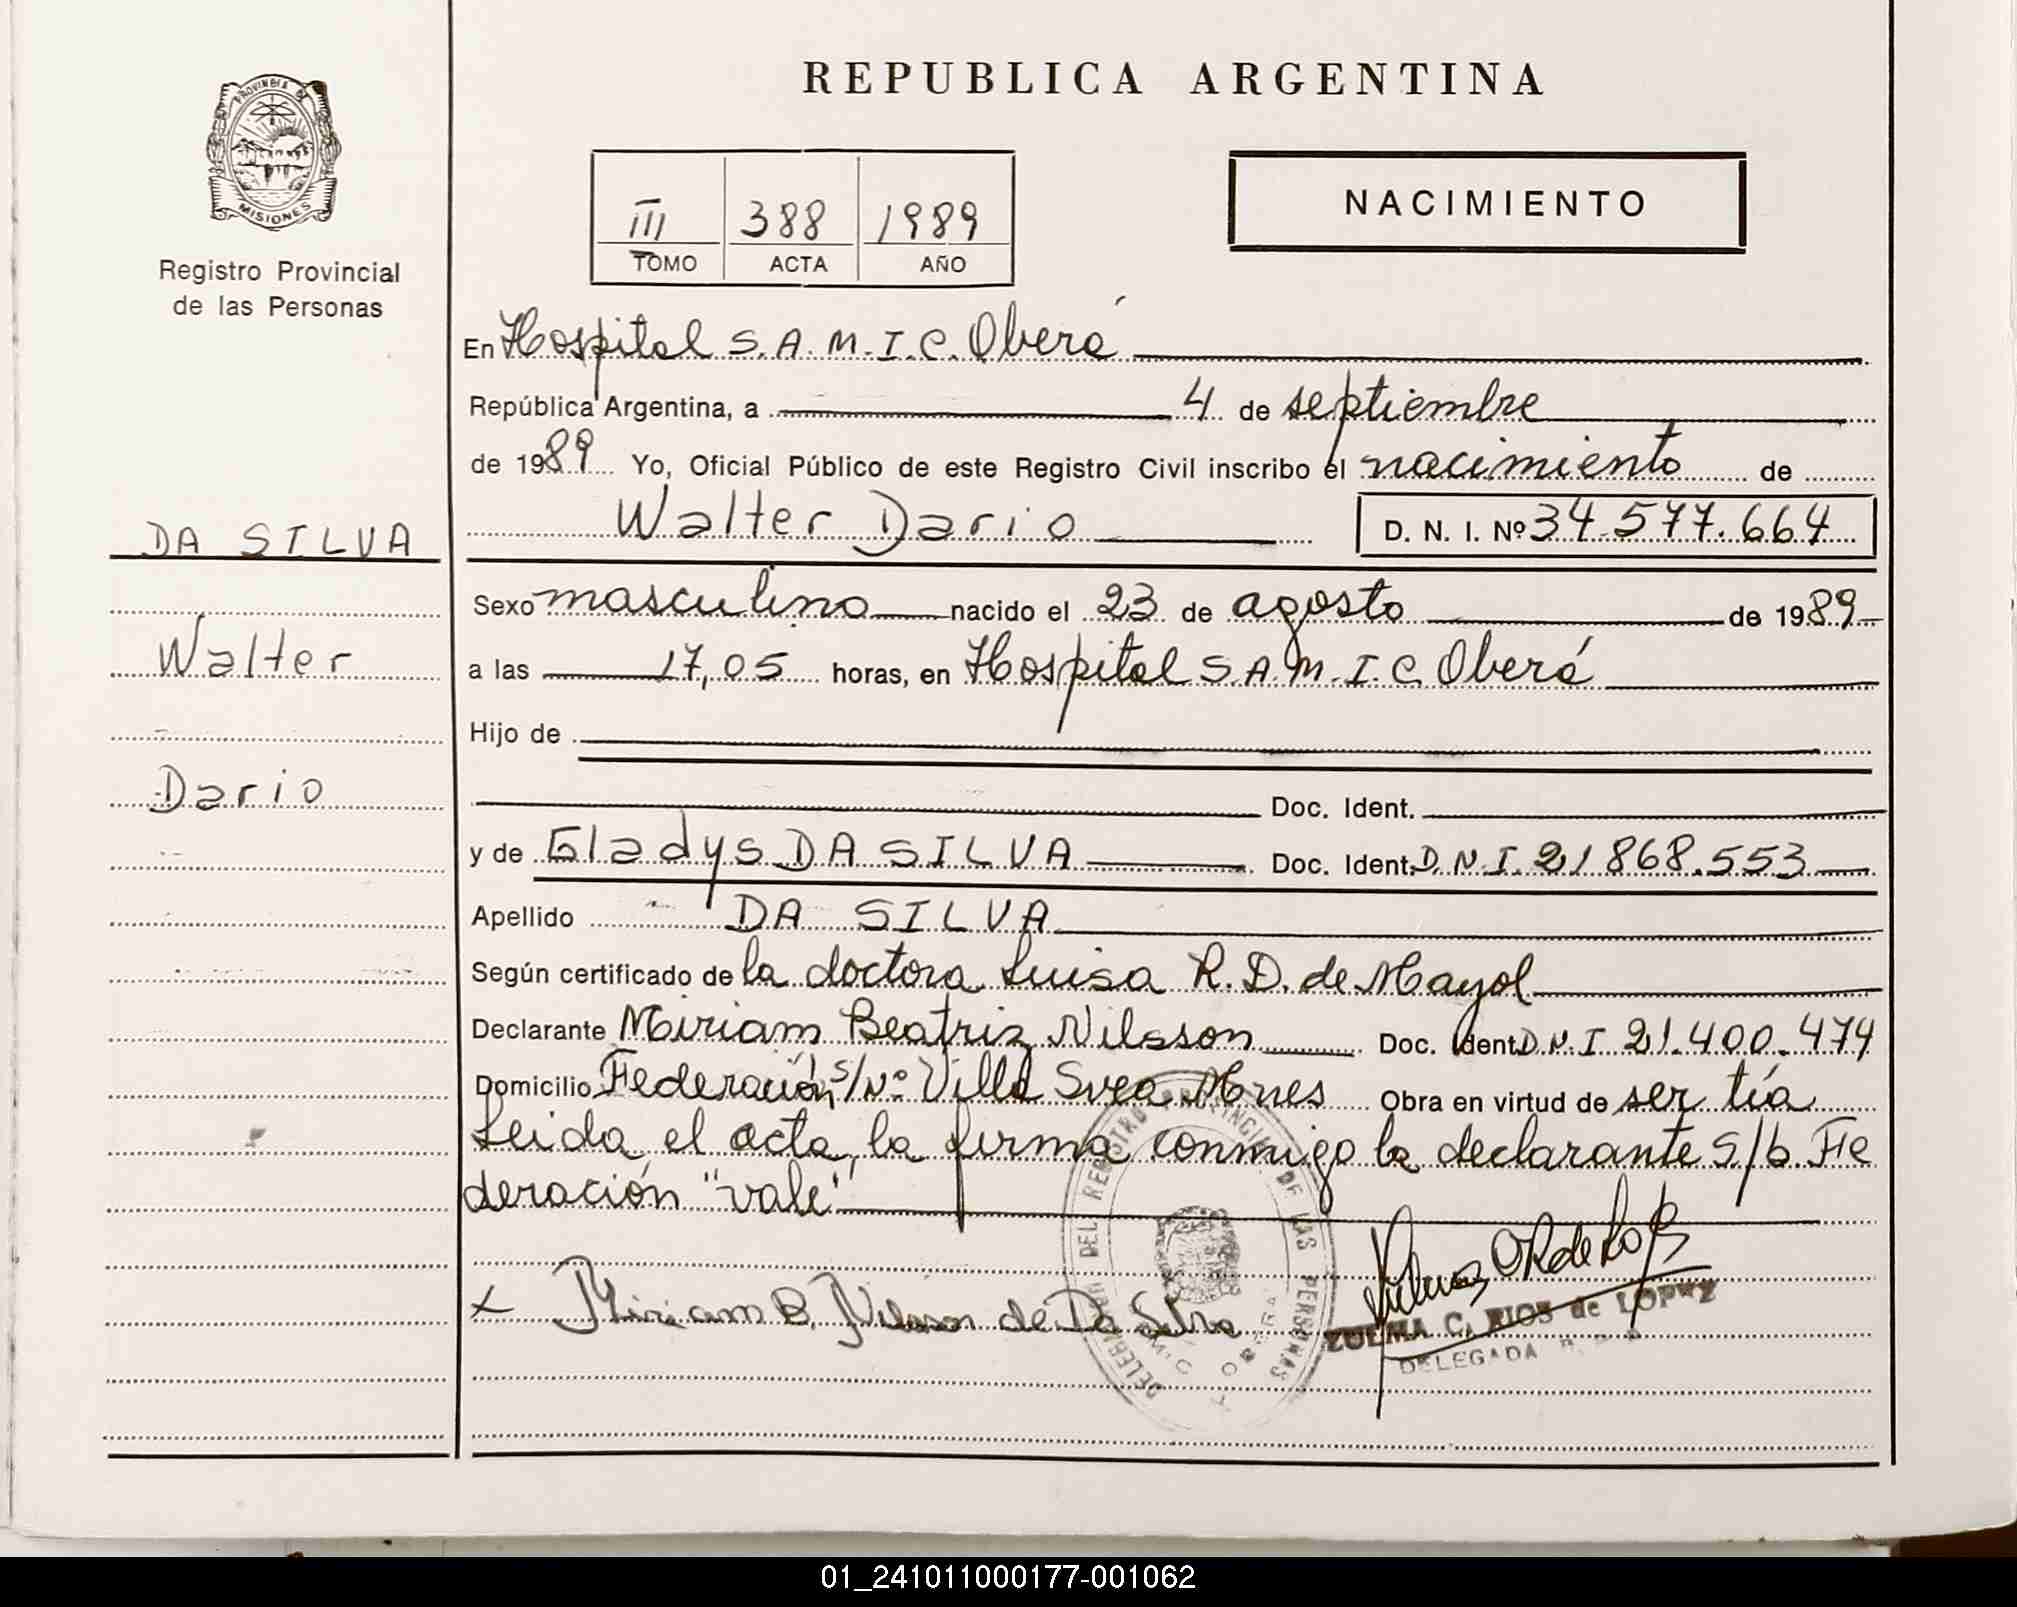 REPUBLICA ARGENTINA
PROVINCIA DE
MISIONES
Registro Provincial
de las Personas
III 388 1989
TOMO ACTA AÑO
NACIMIENTO
En Hospital S.A.M.I.C. Oberá
República Argentina, a 4 de septiembre
de 1989 Yo, Oficial Público de este Registro Civil inscribo el nacimiento de
DA SILVA
Walter Dario D. N. I. Nº 34.577.664
Sexo masculino nacido el 23 de agosto de 1989
Walter
a las 17,05 horas, en Hospital S.A.M.I.C. Oberá
Hijo de
Dario
Doc. Ident.
y de Gladys DA SILVA Doc. Ident. D.N.I. 21868.553
Apellido DA SILVA
Según certificado de la doctora Luisa R.D. de Mayol
Declarante Miriam Beatriz Nilsson Doc. Ident D.N.I 21.400.474
Domicilio Federación S/Nº Villa Svea Mnes Obra en virtud de ser tía
Leida el acta, la firma conmigo la declarante S/b. Fe
deración "vale"
x Miriam B. Nilsson de Da Silva
DEL REGISTRO PROVINCIAL DE LAS PERSONAS
ZULMA C. RIOS de LOPEZ
DELEGADA
01_241011000177-001062